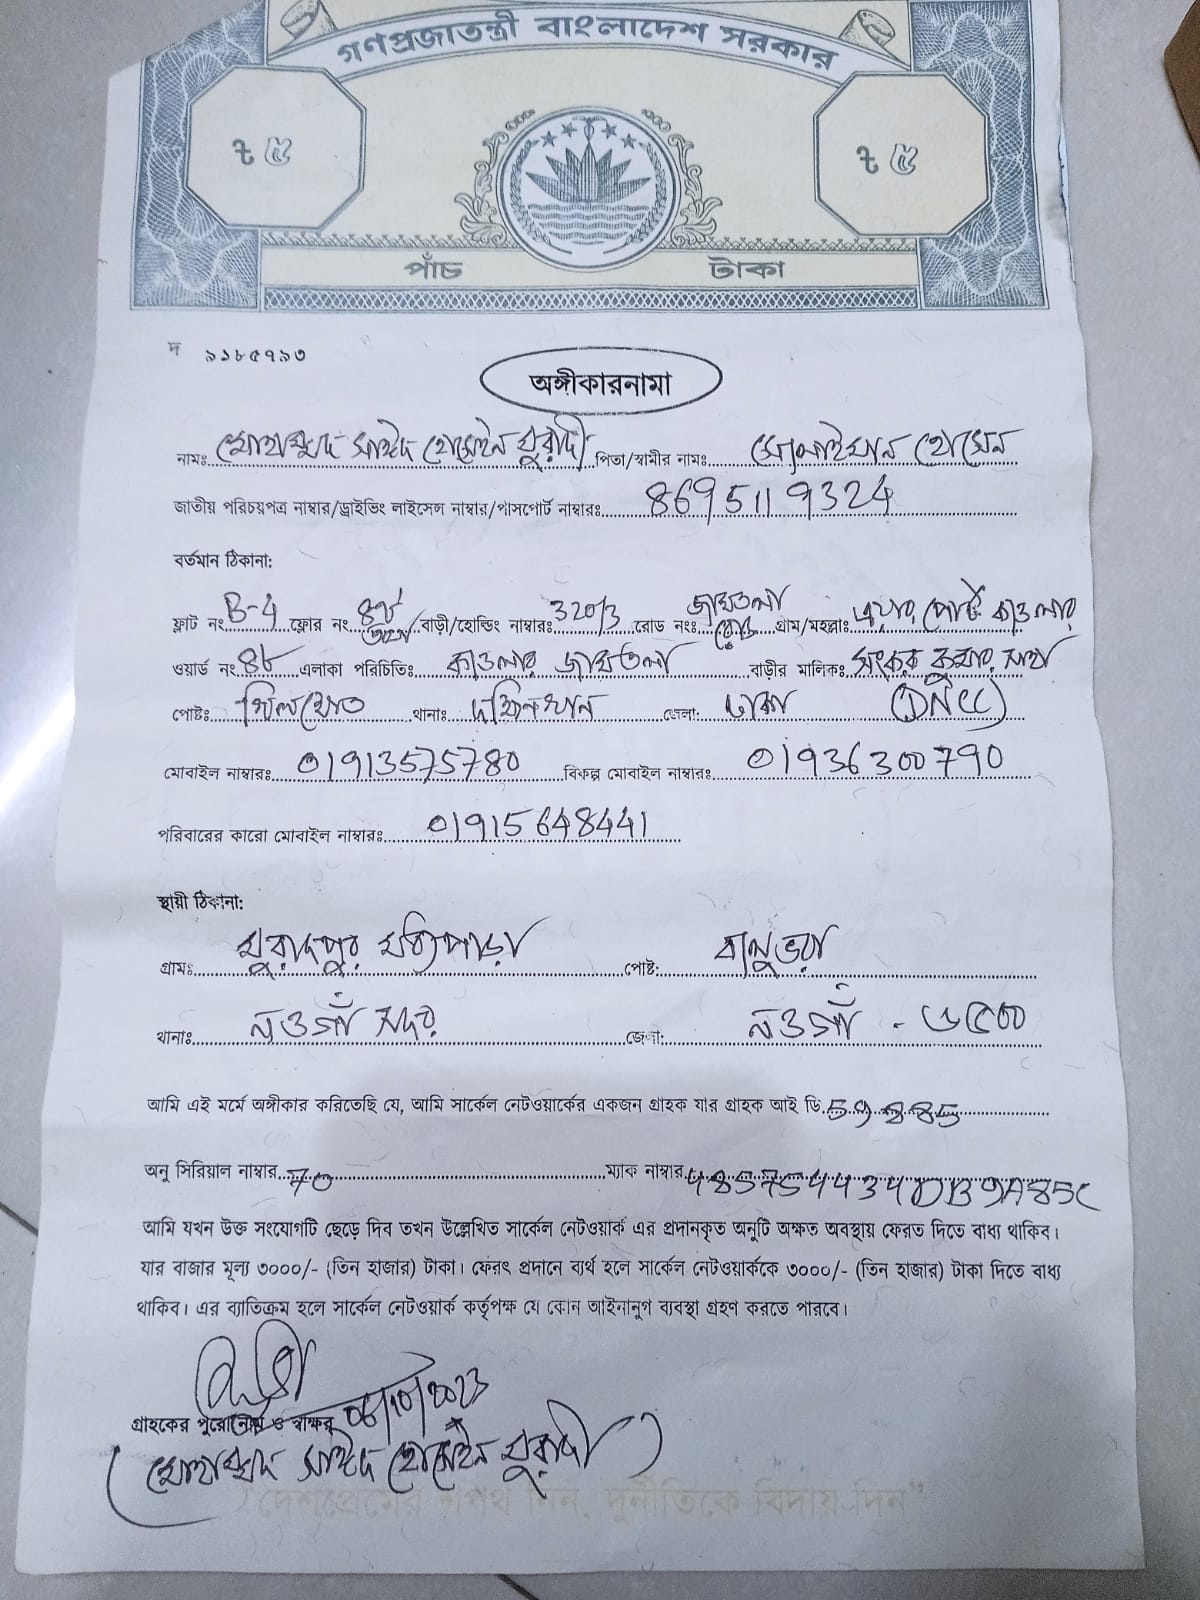 গণপ্রজাতন্ত্রী বাংলাদেশ সরকার
৳ ৫ ৳ ৫
পাঁচ টাকা
দ ৯১৮৫৭৯৩
অঙ্গীকারনামা
নামঃ মোহাম্মদ সাঈদ হোসেইন মুরাদী পিতা/স্বামীর নামঃ সোলাইমান হোসেন
জাতীয় পরিচয়পত্র নাম্বার/ড্রাইভিং লাইসেন্স নাম্বার/পাসপোর্ট নাম্বারঃ 8695119324
বর্তমান ঠিকানা:
ফ্লাট নং B-4 ফ্লোর নং 8র্থ তলা বাড়ী/হোল্ডিং নাম্বারঃ 320/3 রোড নংঃ জামতলা রোড গ্রাম/মহল্লাঃ এয়ার পোর্ট কাওলার
ওয়ার্ড নং এলাকা পরিচিতিঃ কাওলার জামতলা বাড়ীর মালিকঃ শংকর কুমার সাহা
পোষ্টঃ খিলক্ষেত থানাঃ দক্ষিনখান জেলা: ঢাকা (DNCC)
মোবাইল নাম্বারঃ 01913575780 বিকল্প মোবাইল নাম্বারঃ 01936300790
পরিবারের কারো মোবাইল নাম্বারঃ 01915648441
স্থায়ী ঠিকানা:
গ্রামঃ মুরাদপুর পোষ্ট: বালুভরা
থানাঃ নওগাঁ সদর জেলা: নওগাঁ - ৬৫০০
আমি এই মর্মে অঙ্গীকার করিতেছি যে, আমি সার্কেল নেটওয়ার্কের একজন গ্রাহক যার গ্রাহক আই ডি
অনু সিরিয়াল নাম্বার 70 ম্যাক নাম্বার 485754434DB9A85C
আমি যখন উক্ত সংযোগটি ছেড়ে দিব তখন উল্লেখিত সার্কেল নেটওয়ার্ক এর প্রদানকৃত অনুটি অক্ষত অবস্থায় ফেরত দিতে বাধ্য থাকিব।
যার বাজার মূল্য ৩০০০/- (তিন হাজার) টাকা। ফেরৎ প্রদানে ব্যর্থ হলে সার্কেল নেটওয়ার্ককে ৩০০০/- (তিন হাজার) টাকা দিতে বাধ্য
থাকিব। এর ব্যতিক্রম হলে সার্কেল নেটওয়ার্ক কর্তৃপক্ষ যে কোন আইনানুগ ব্যবস্থা গ্রহণ করতে পারবে।
গ্রাহকের পুরোনাম ও স্বাক্ষর 06/10/2023
(মোহাম্মদ সাঈদ হোসেইন মুরাদী)
"দেশপ্রেমের শপথ নিন, দুর্নীতিকে বিদায় দিন"